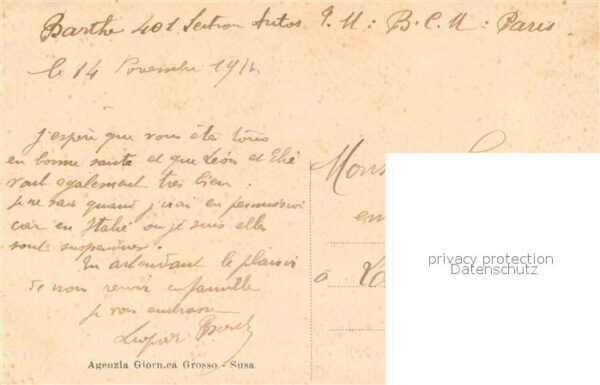 Barthe 401 Section Autos T.M : B.C.M : Paris.
le 14 Novembre 191
j'espère que vous êtes tous
en bonne santé et que Léon et Elié
vont également très bien.
je ne sais quand j'irai en permission
car en Italié ou je suis elles
sont suspendues.
En attendant le plaisir
de nous revoir en famille
je vous embrasse
Agenzia Giorn.ca Grosso - Susa
Mons
en
à
privacy protection
Datenschutz